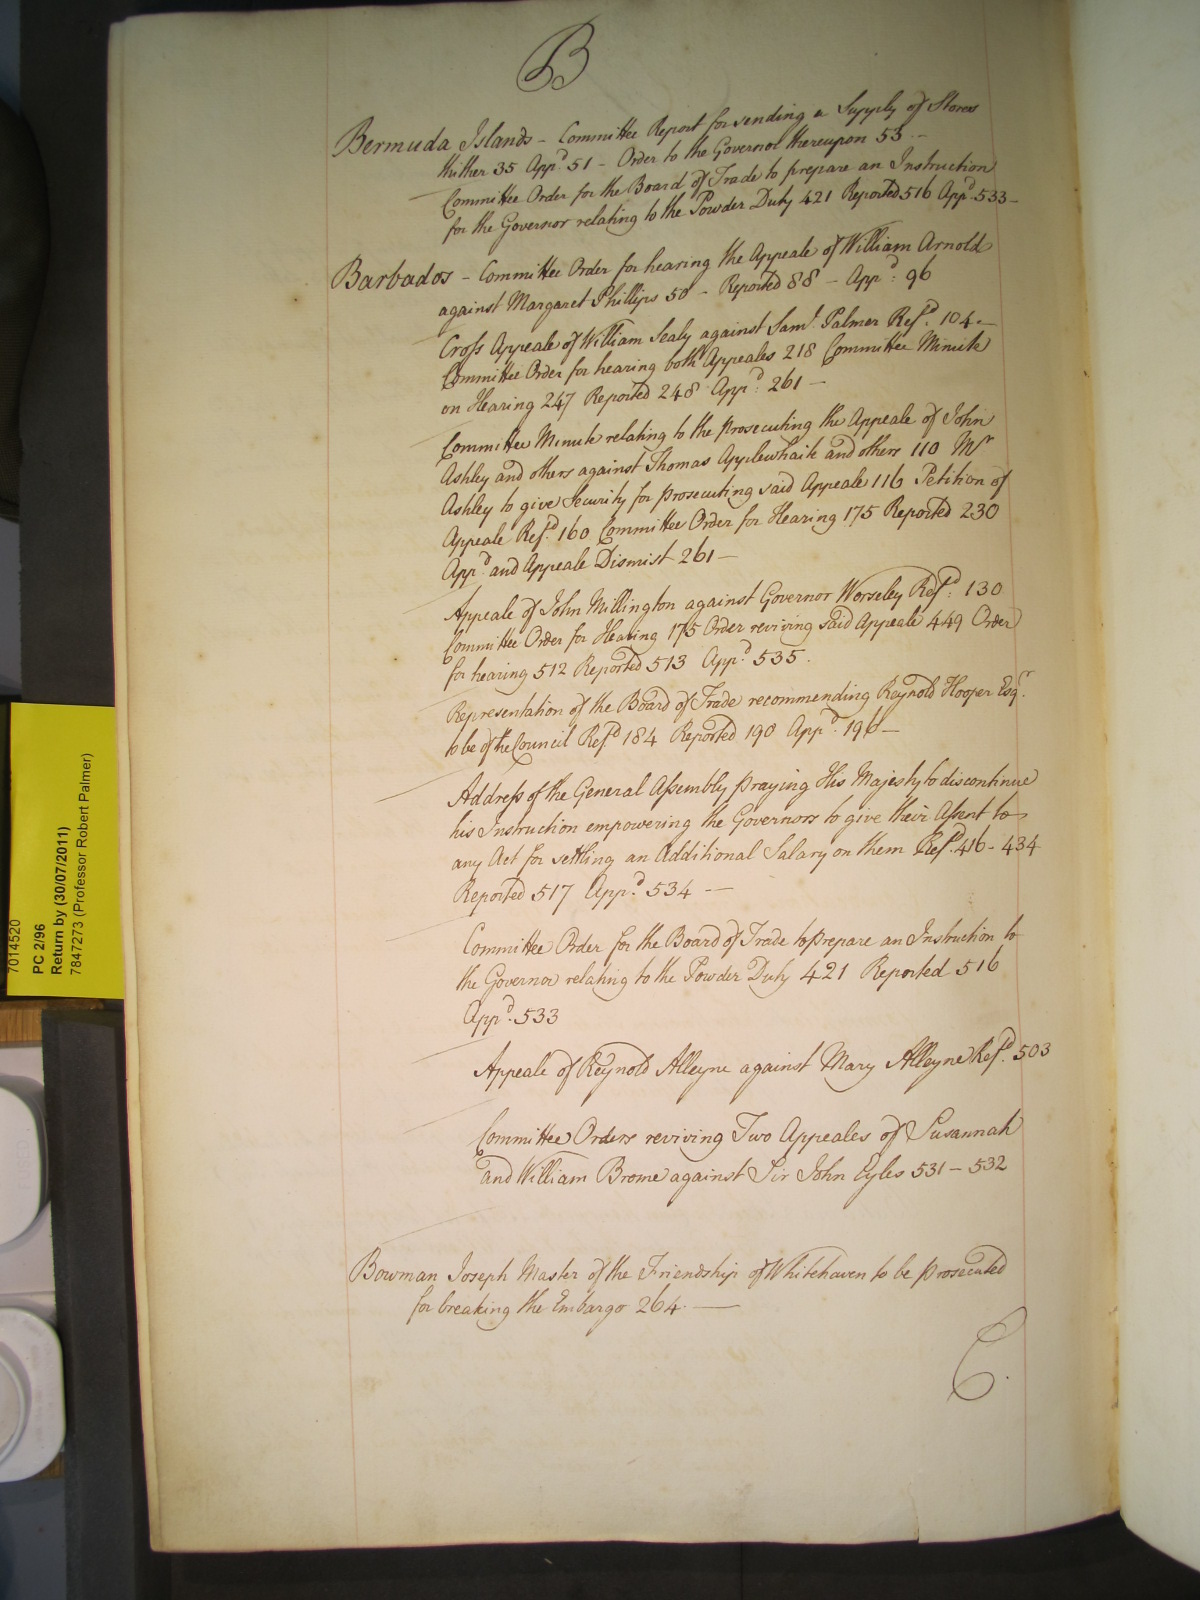 B
Bermuda Islands - Committee Report for sending a Supply of Stores
thither 35 App.d 51 - Order to the Governor thereupon 53 -
Committee Order for the Board of Trade to prepare an Instruction
for the Governor relating to the Powder Duty 421 Reported 516 App.d 533 -
Barbados - Committee Order for hearing the Appeale of William Arnold
against Margaret Phillips 50 - Reported 88 - App.d 96
Cross Appeale of William Sealy against Sam.l Palmer Ref.d 104 -
Committee Order for hearing both Appeales 218 Committee Minute
on Hearing 247 Reported 248 App.d 261 -
Committee Minute relating to the prosecuting the Appeale of John
Ashley and others against Thomas Applewhaite and others 110 Mr
Ashley to give Security for prosecuting said Appeale 116 Petition of
Appeale Ref.d 160 Committee Order for Hearing 175 Reported 230
App.d and Appeale Dismist 261 -
Appeale of John Millington against Governor Worseley Ref.d 130
Committee Order for Hearing 175 Order reviving said Appeale 449 Order
for hearing 512 Reported 513 App.d 535.
Representation of the Board of Trade recommending Reynold Hooper Esq.r
to be of the Council Ref.d 184 Reported 190 App.d 196 -
Address of the General Assembly praying His Majesty to discontinue
his Instruction empowering the Governors to give their Assent to
any Act for settling an Additional Salary on them Ref.d 416 - 434
Reported 517 App.d 534 -
Committee Order for the Board of Trade to prepare an Instruction to
the Governor relating to the Powder Duty 421 Reported 516
App.d 533
Appeale of Reynold Alleyne against Mary Alleyne Ref.d 503
Committee Orders reviving Two Appeales of Susannah
and William Brome against Sir John Eyles 531 - 532
Bowman Joseph Master of the Friendship of Whitehaven to be prosecuted
for breaking the Embargo 264. -
C.
7014520
PC 2/96
Return by (30/07/2011)
7847273 (Professor Robert Palmer)